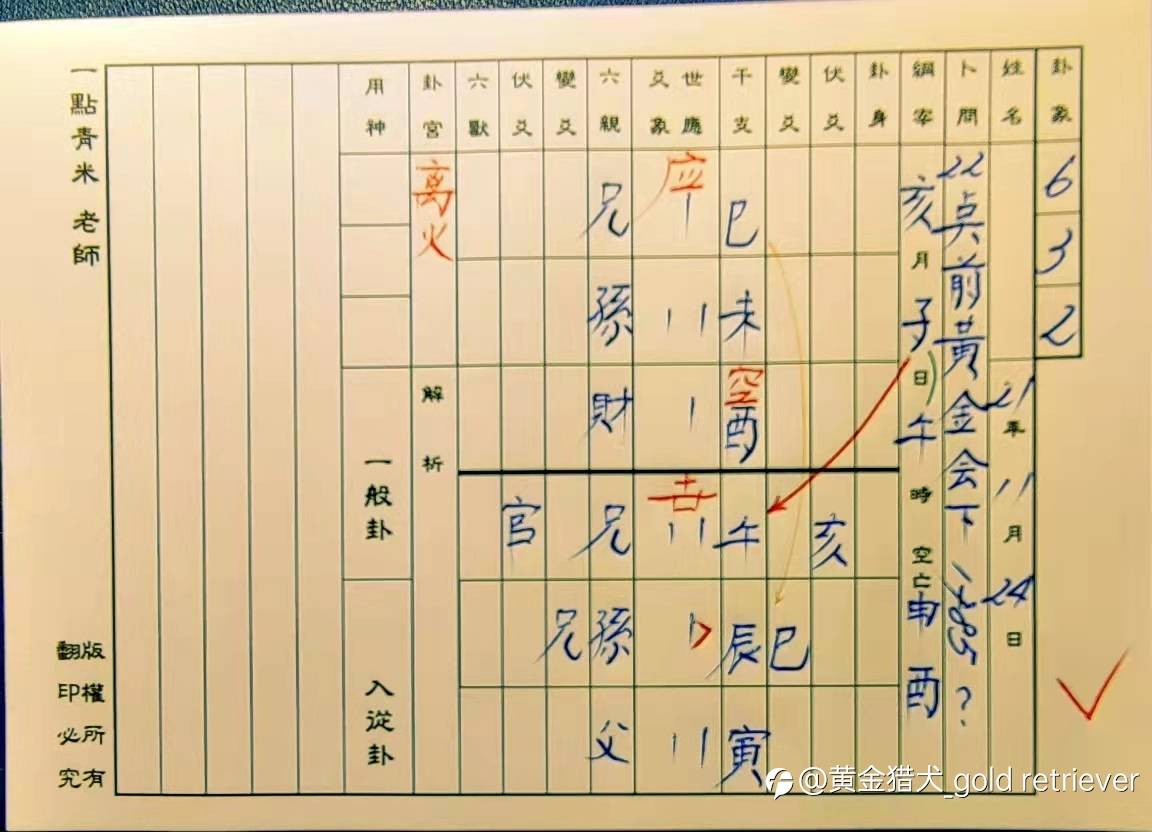 卦象
6
3
2
姓名
21年11月24日
卜問
22点前黃金会下?
綱宰
亥月子日午時空亡申酉
卦身
伏爻
亥
變爻
巳
干支
巳
未
空
酉
午
辰
寅
世應
爻象
应
六親
兄
孫
財
兄
孫
父
變爻
兄
伏爻
官
六獸
卦宮
离火
解析
用神
一般卦
入從卦
一點青米 老師
版權所有
翻印必究
@黄金猎犬_gold retriever